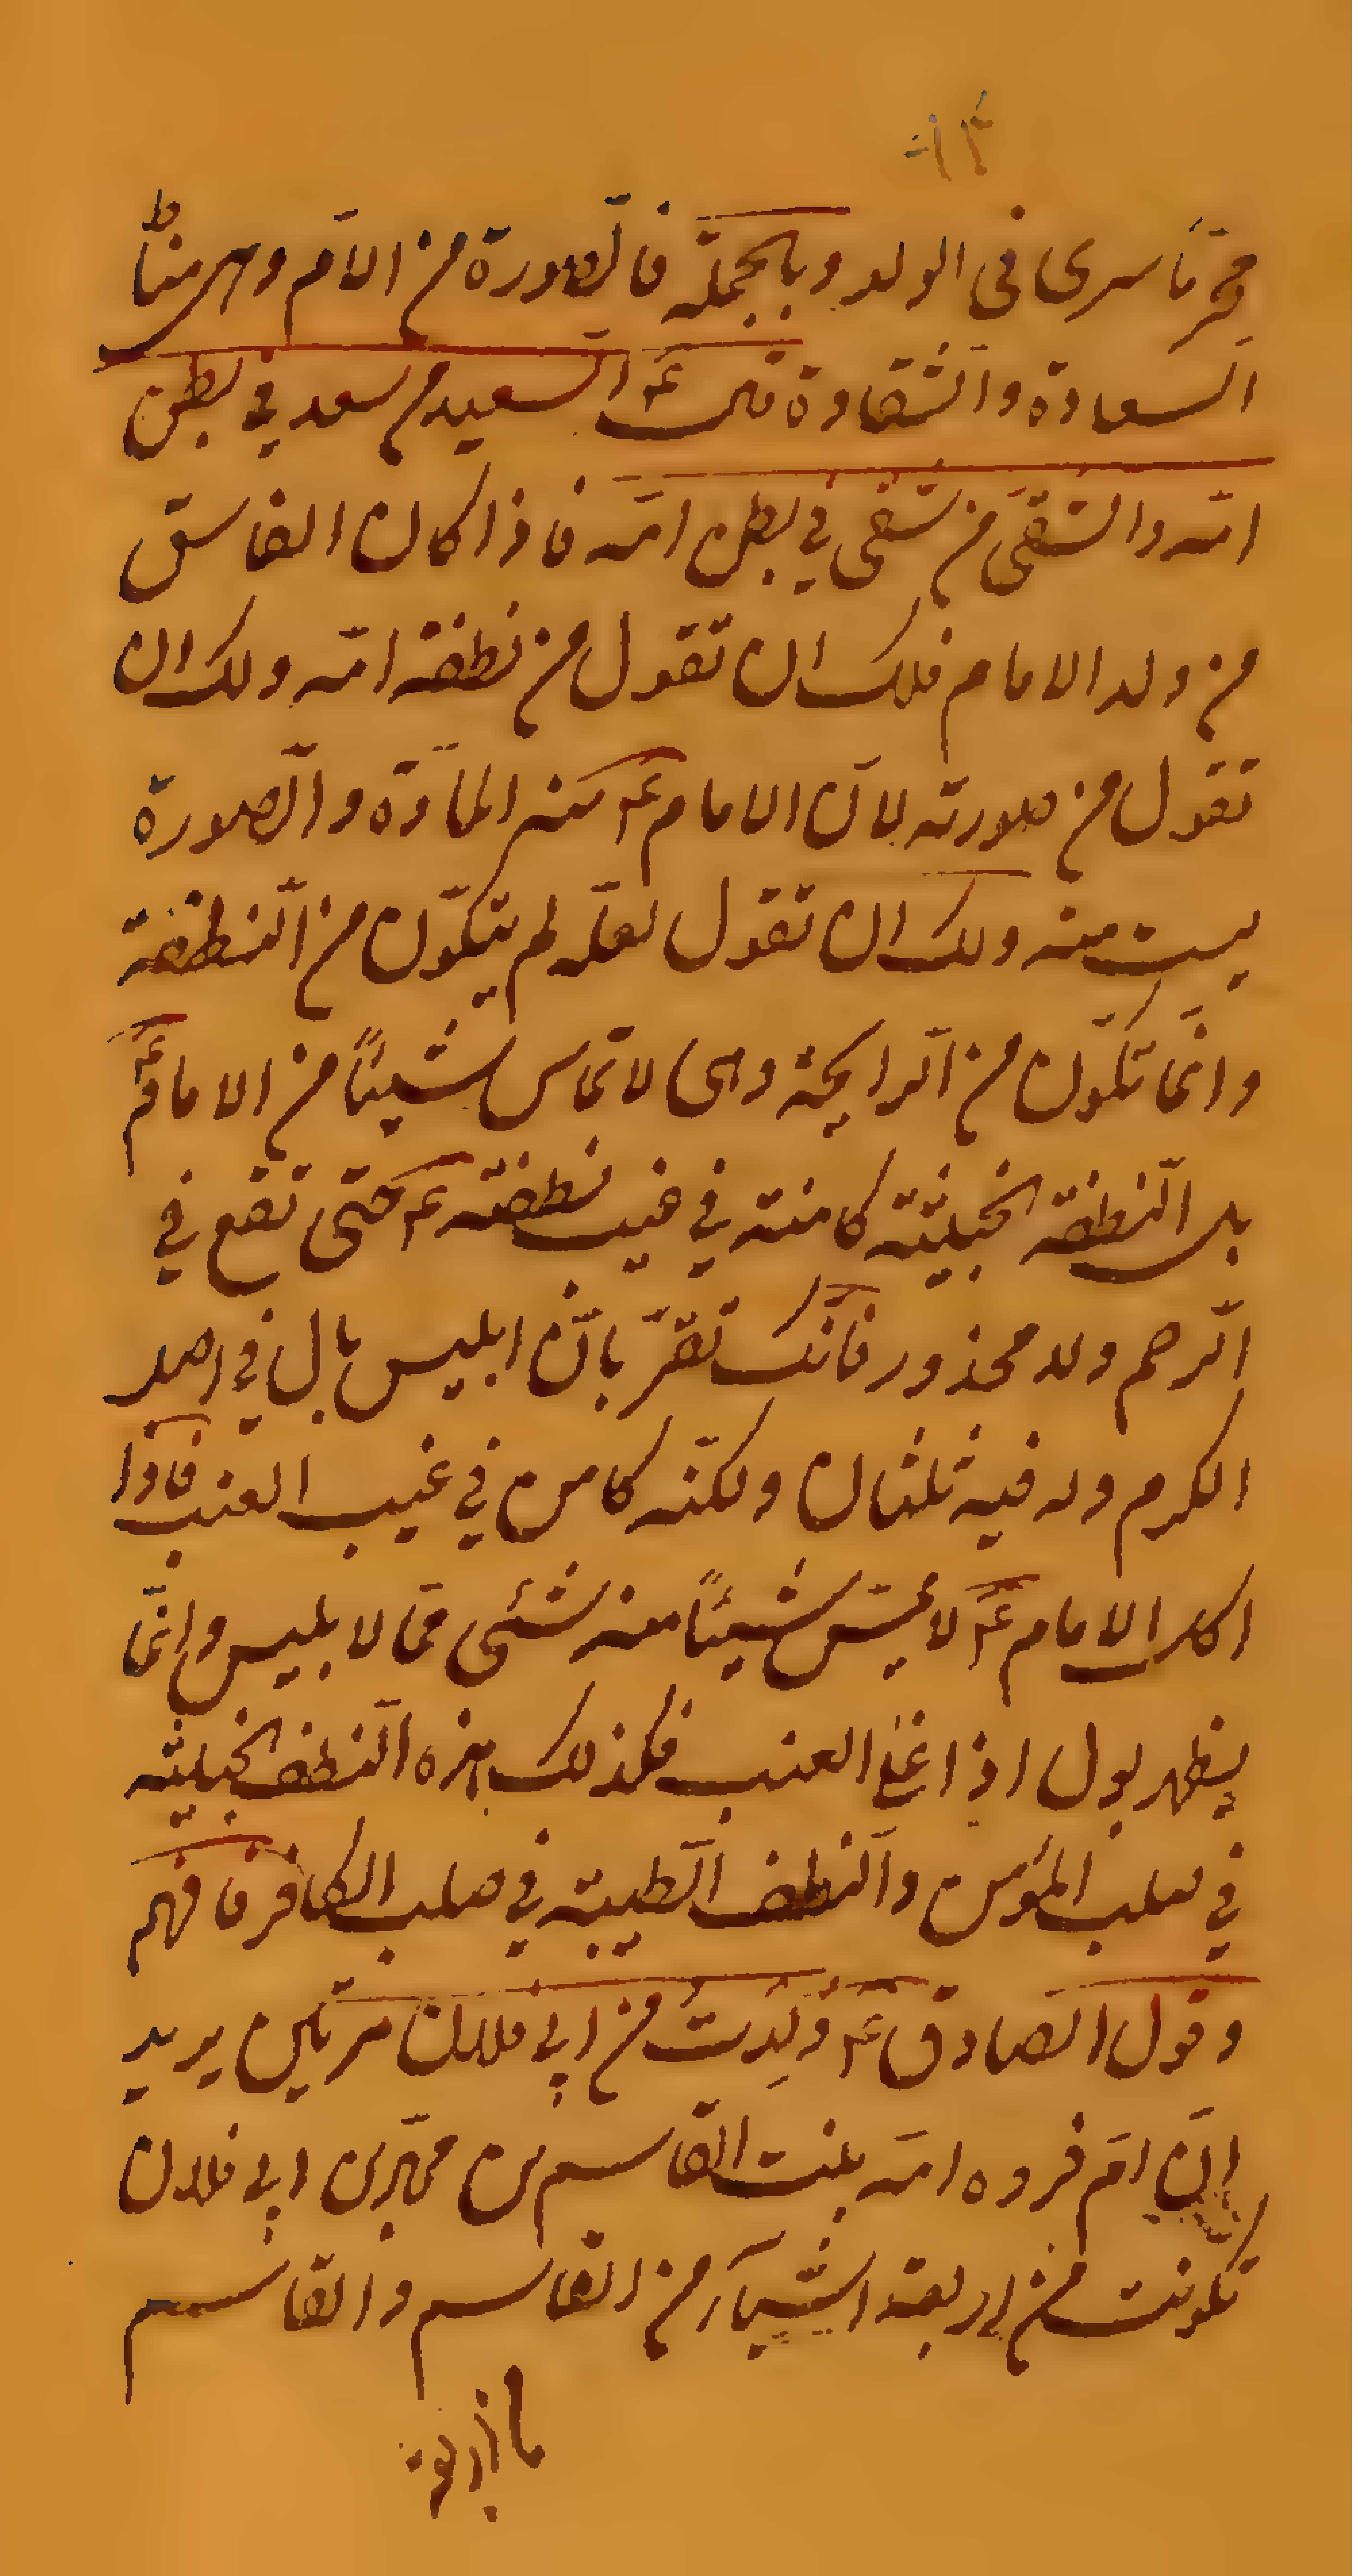 محرّماً سرى في الولد وبالجملة فالصّورة من الامّ وهى مناط
السعادة والشّقاوة قال ع السعيد من سعد في بطن
امّه والشّقىّ من شقى في بطن امّه فاذا كان الفاسق
من ولد الامام فلك ان تقول من نطفة امّه ولك ان
تقول من صورته لانّ الامام ع منه المادّة والصّورة
ليست منه ولك ان تقول لعلّه لم يتكوّن من النّطفة
وانّما تكوّن من الرّايحة وهى لا تماس شيئاً من الامام ع
بل النّطفة الخبيثة كامنة في غيب نطفته ع حتّى تقع في
الرّحم ولا محذور فانّك تقرّ بانّ ابليس بال في اصل
الكرم وله فيه ثلثان ولكنّه كامن في غيب العنب فاذا
اكل الامام ع لا يمسّ شيئاً منه شئى ممّا لابليس وانّما
يظهر بول اذا غلى العنب فكذلك هذه النّطف الخبيثة
في صلب المؤمن والنّطف الطّيبة في صلب الكافر فافهم
وقول الصّادق ع وُلِدَتُ من ابي فلان مرّتين يريد
انّ امّ فروه امّه بنت القاسم بن محمّد بن ابي فلان
تكونت من اربعة اشيآء من القاسم والقاسم